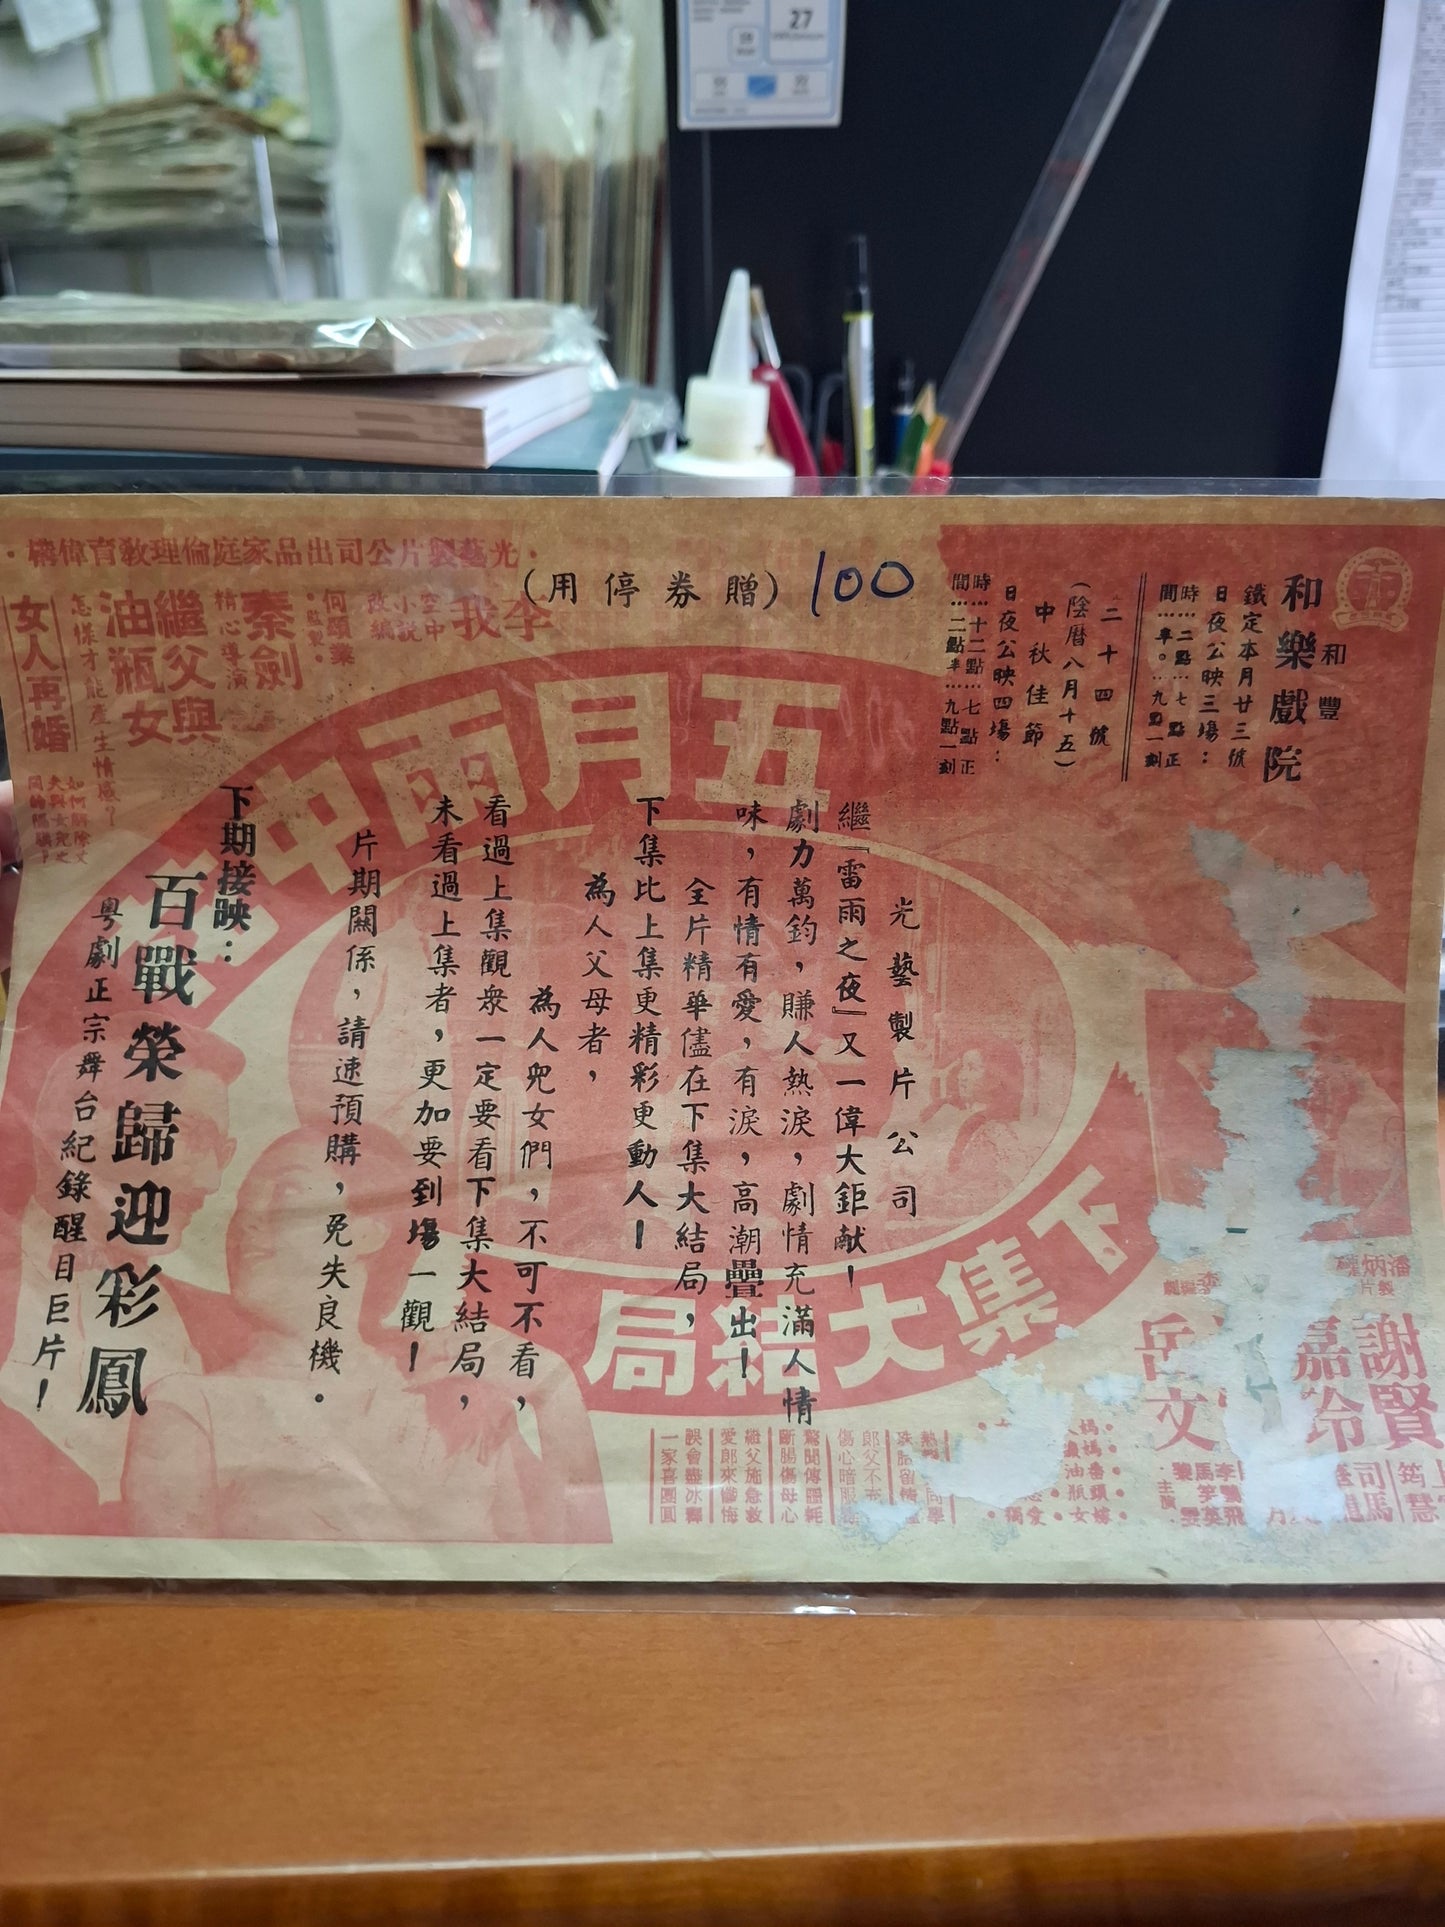 和豐
和樂戲院
鐵定本月廿三號
日夜公映三場：
時間：二點半。七點正 九點一刻
二十四號
(陰曆八月十五)
中秋佳節
日夜公映四場：
時間：十二點…七點正 二點半…九點一刻
(贈券停用)
100
光藝製片公司
繼『雷雨之夜』又一偉大鉅献！
劇力萬鈞，賺人熱淚，劇情充滿人情
味，有情有愛，有淚，高潮疊出！
全片精華儘在下集大結局，
下集比上集更精彩更動人！
為人父母者，
為人兒女們，不可不看，
看過上集觀衆一定要看下集大結局，
未看過上集者，更加要到塲一觀！
片期關係，請速預購，免失良機。
下期接映：
百戰榮歸迎彩鳳
粵劇正宗舞台紀錄醒目巨片！
光藝製片公司出品家庭倫理教育偉構
五月雨中
下集大結局
李我
空中小說
改編
何頌業
監製
秦劍
精心導演
繼父與
油瓶女
怎樣才能產生情感？
女人再婚
潘炳權
製片
謝賢
嘉玲
岳
文
司馬
筠慧
主演
驚聞傳噩耗
斷腸傷母心
繼父施急救
愛郎來懺悔
誤會盡冰釋
一家喜團圓